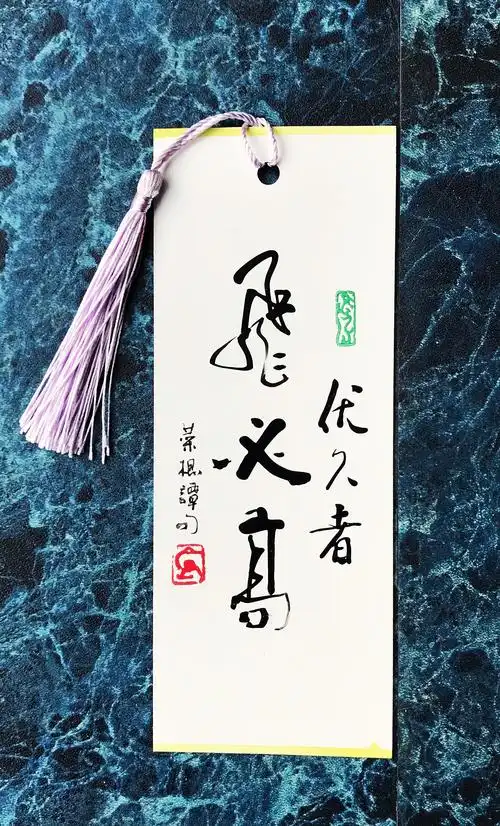 伏久者
飛必高
菜根譚句